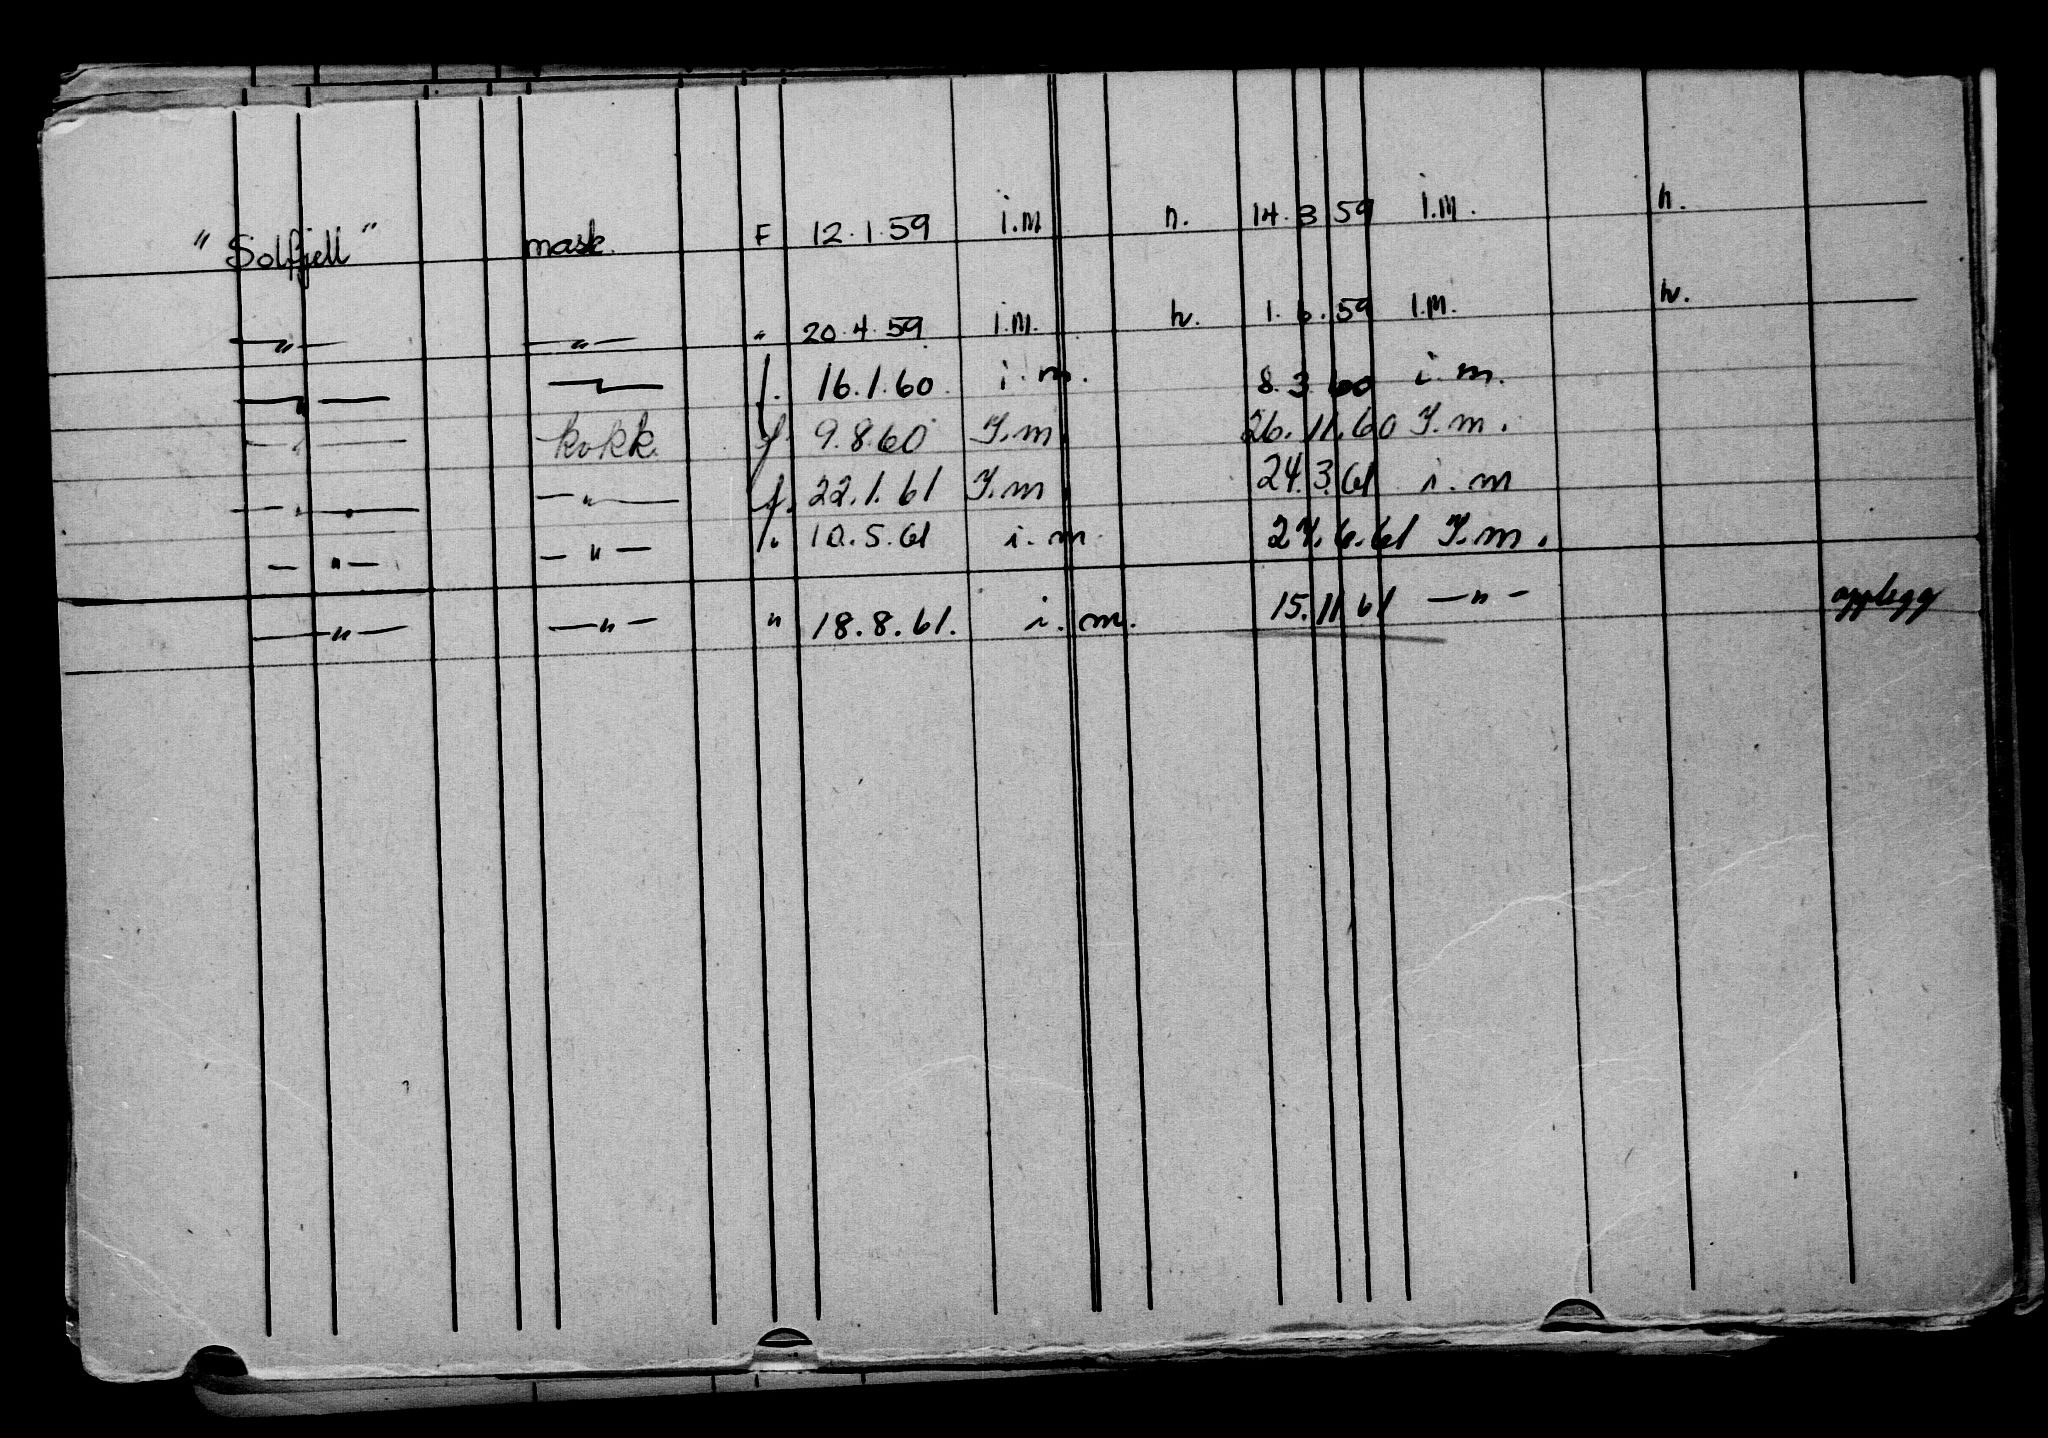 "Solfjell" mask. F 12.1.59 i.m n. 14.3.59 I.M. h.
—"— —"— " 20.4.59 I.M. h. 1.6.59 I.M. h.
—"— —"— f. 16.1.60. i.m. 8.3.60 i.m.
—"— kokk. f. 9.8.60 I.m. 26.11.60 I.m.
—"— —"— f. 22.1.61 I.m. 24.3.61 i.m
—"— —"— f. 10.5.61 i.m. 27.6.61 I.m.
—"— —"— " 18.8.61. i.m. 15.11.61 —"— opplegg